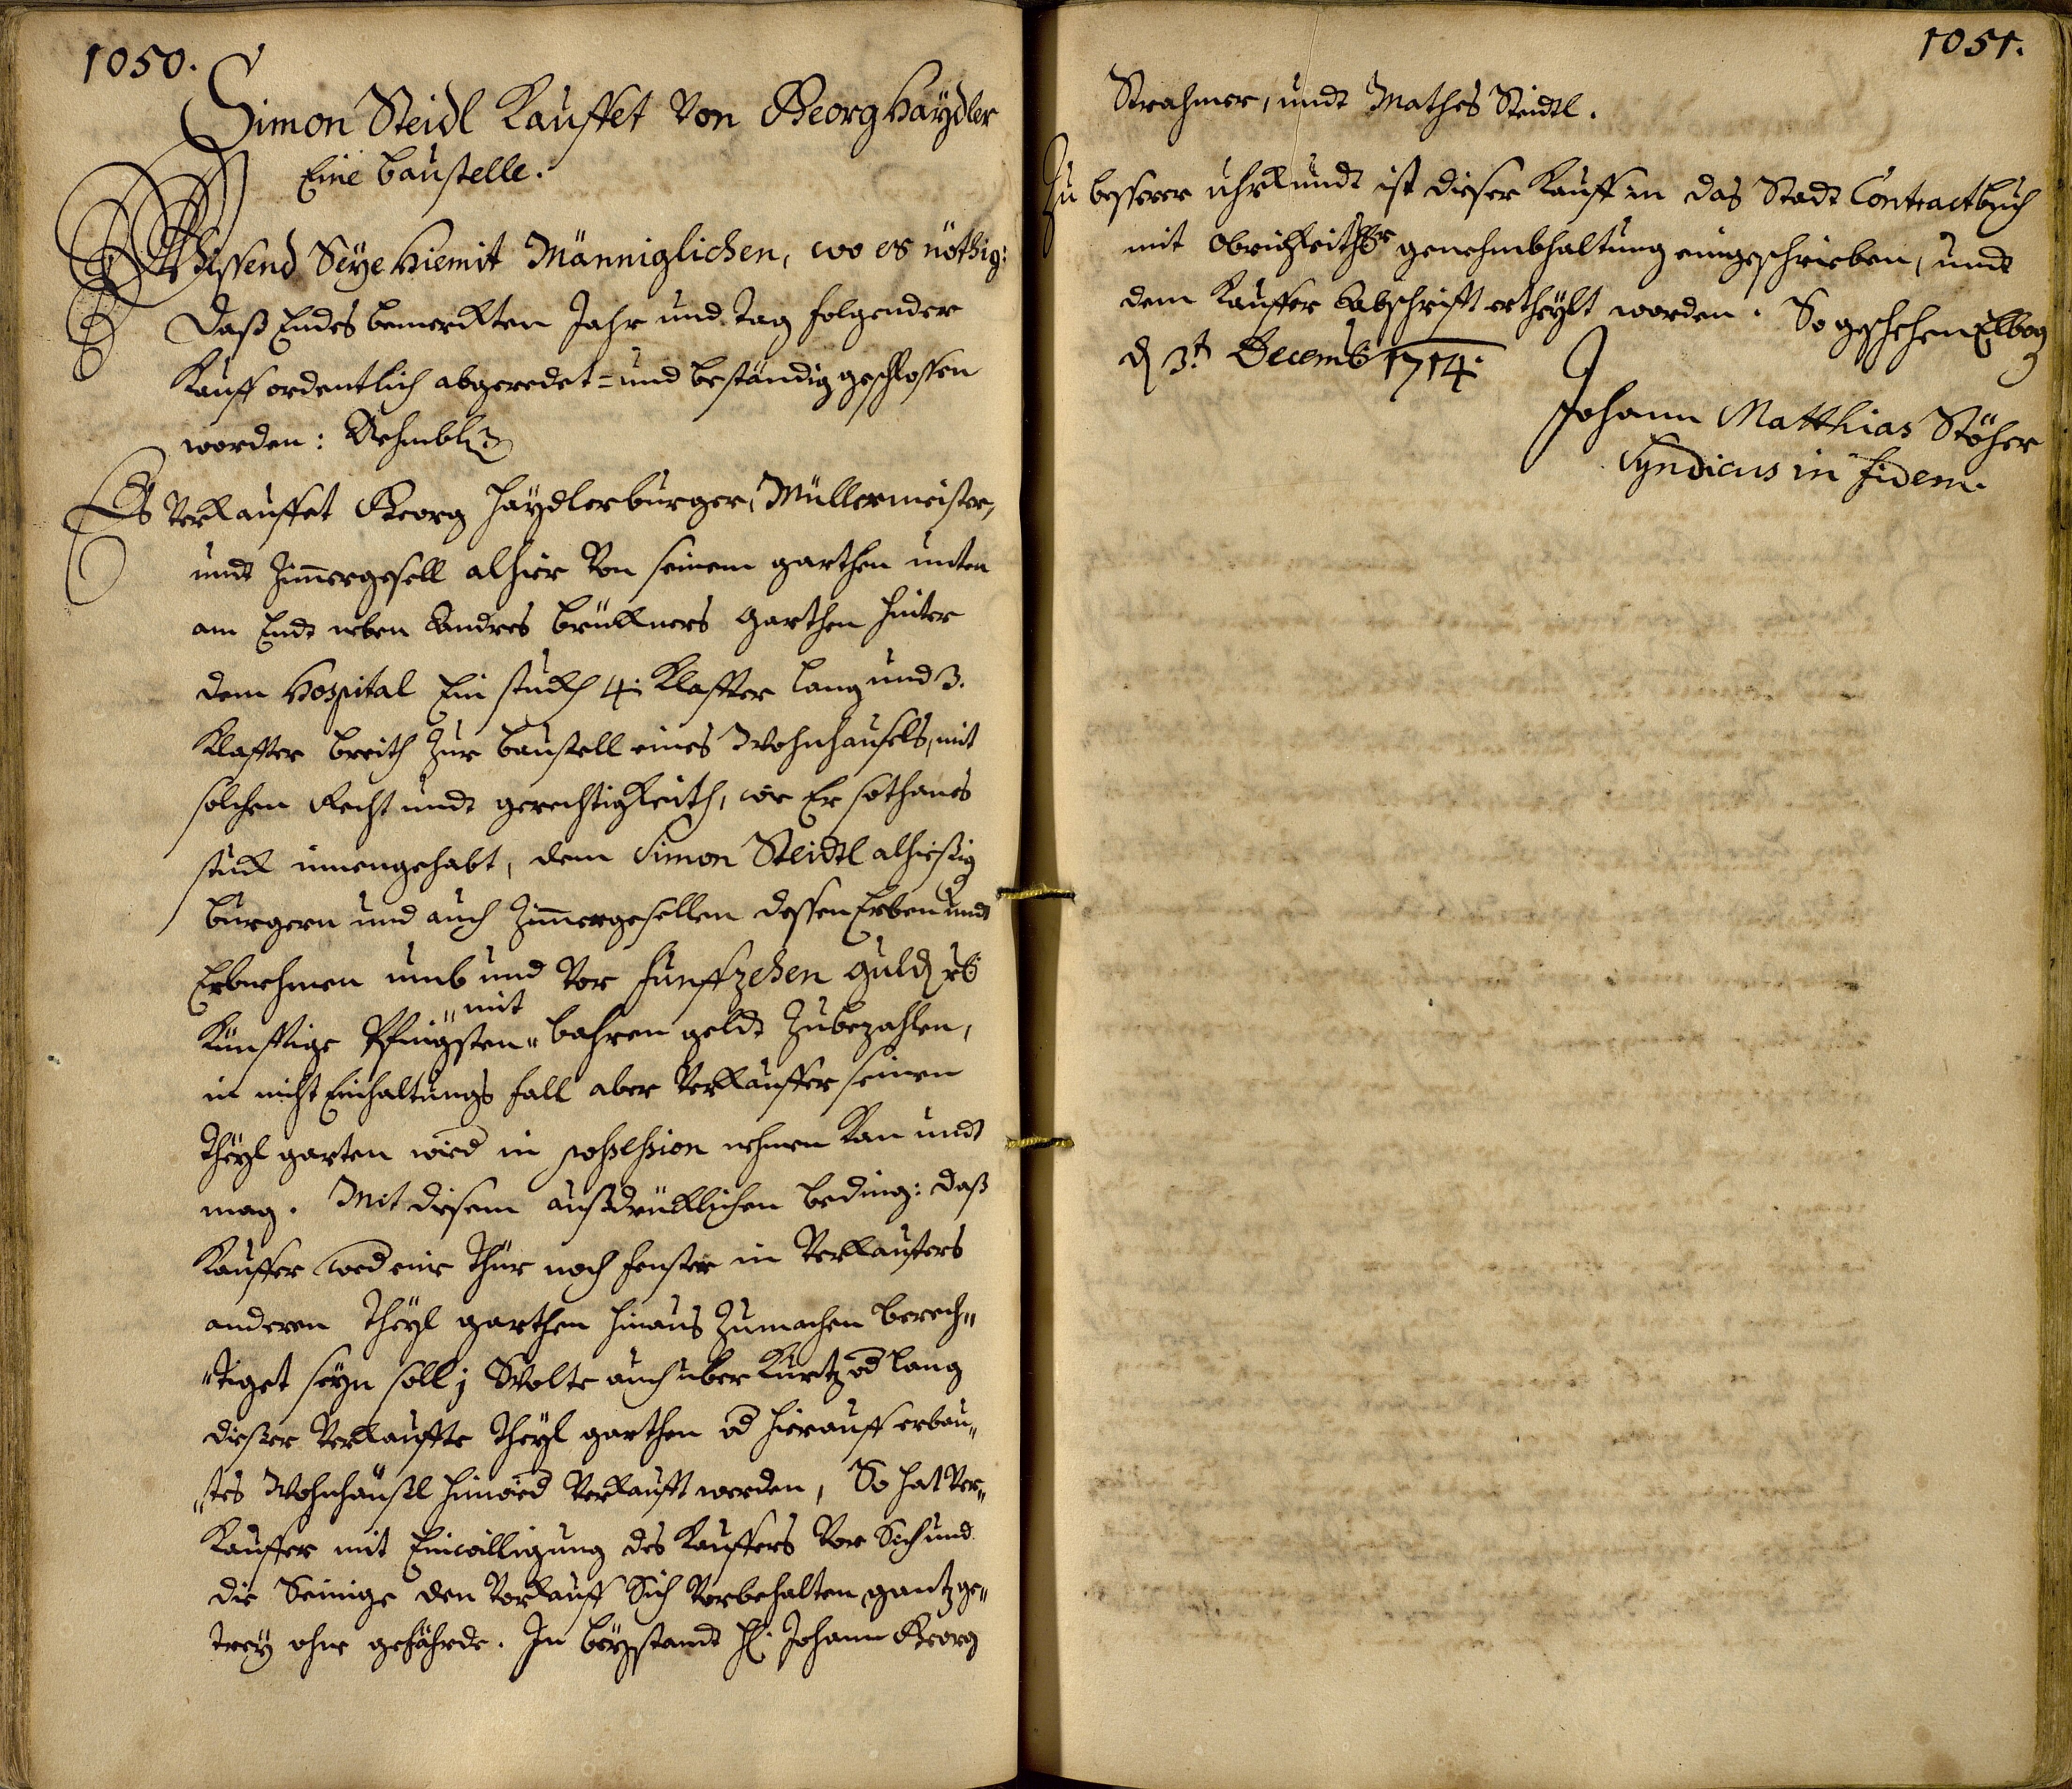 1050.
Simon Steidl Kauffet von Georg Haÿdler
Eine baustelle.
Wissend Seÿe Hiemit Männiglichen, wo es nöthig:
Daß Endes bemerckten Jahr und Tag folgender
Kauff ordentlich abgeredet= und beständig geschlossen
worden: Nehmbl:
Es verkauffet Georg Haÿdler burger, Müllermeister,
undt Zimmergesell alhier von seinem garthen unten
am Endt neben Andres Brükners garthen hinter
dem Hospital Ein stuckh 4: Klaffter lang und 3.
Klaffter breith zur baustell eines Wohnhaußls, mit
solchen Recht undt gerechtigkeith, wie Er sothanes
stuck innengehabt, dem Simon Steidtl alhießig
burgern und auch Zimmergesellen dessen Erben undt
Erbnehmen umb und vor funffzehen guld
"mit
Künfftige Pfingsten" bahren geldt zubezahlen,
in nicht Einhaltungs fall aber Verkäuffer seinen
Theÿl garten wied in possession nehmen kan undt
mag. Mit diesem außdrüklichen beding: daß
Kauffer wed eine Thür noch fenster in Verkauffers
anderen Theÿl garthen hinaus zumachen berech"
"tiget seyn soll; Wolte auch uber kurtz od lang
dießer verkauffte Theÿl garthen od hierauff erbau"
"tes Wohnhäußl hinwied verkaufft werden, So hat Ver"
Kauffer mit Einwilligung des Kauffers vor Sich und
die Seinige den Vorkauff Sich vorbehalten, gantz ge"
treÿ ohne gefährde. In beÿstandt H: Johann Georg
1051.
Strahmer, undt Mathes Steidtl.
Zu besserer uhrkundt ist dieser Kauff in das Stadt Contractbuch
mit obrigkeithl genehmbhaltung eingeschrieben, undt
dem Kauffer Abschrifft ertheÿlt worden. So geschehen Elbog
d 3t Decemb 1714.
Johann Matthias Stöhr
Syndicus in fidem.